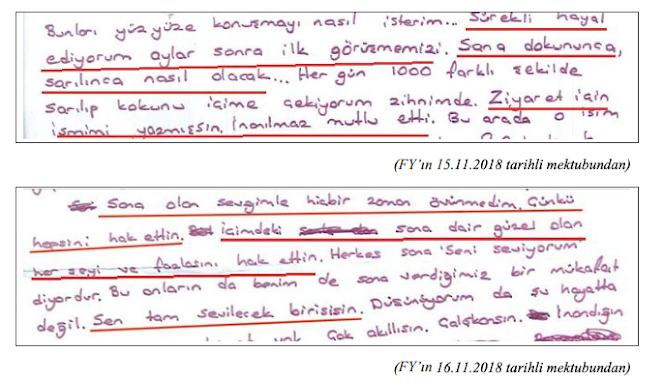 Bunları yüz yüze konuşmayı nasıl isterim... Sürekli hayal
ediyorum aylar sonra ilk görüşmemizi. Sana dokununca,
sarılınca nasıl olacak... Her gün 1000 farklı şekilde
sarılıp kokunu içime çekiyorum zihnimde. Ziyaret için
ismimi yazmışsın. İnanılmaz mutlu etti. Bu arada o isim
(FY'ın 15.11.2018 tarihli mektubundan)
Sana olan sevgimle hiçbir zaman övünmedim. Çünkü
hepsini hak ettin. İçimdeki sana dair güzel olan
her şeyi ve fazlasını hak ettin. Herkes sana 'Seni seviyorum
diyordur. Bu onların da benim de sana verdiğimiz bir mükafat
değil. Sen tam sevilecek birisisin. Düşünüyorum da şu hayatta
Çok akıllısın. Çalışkansın. İnandığın
(FY'ın 16.11.2018 tarihli mektubundan)